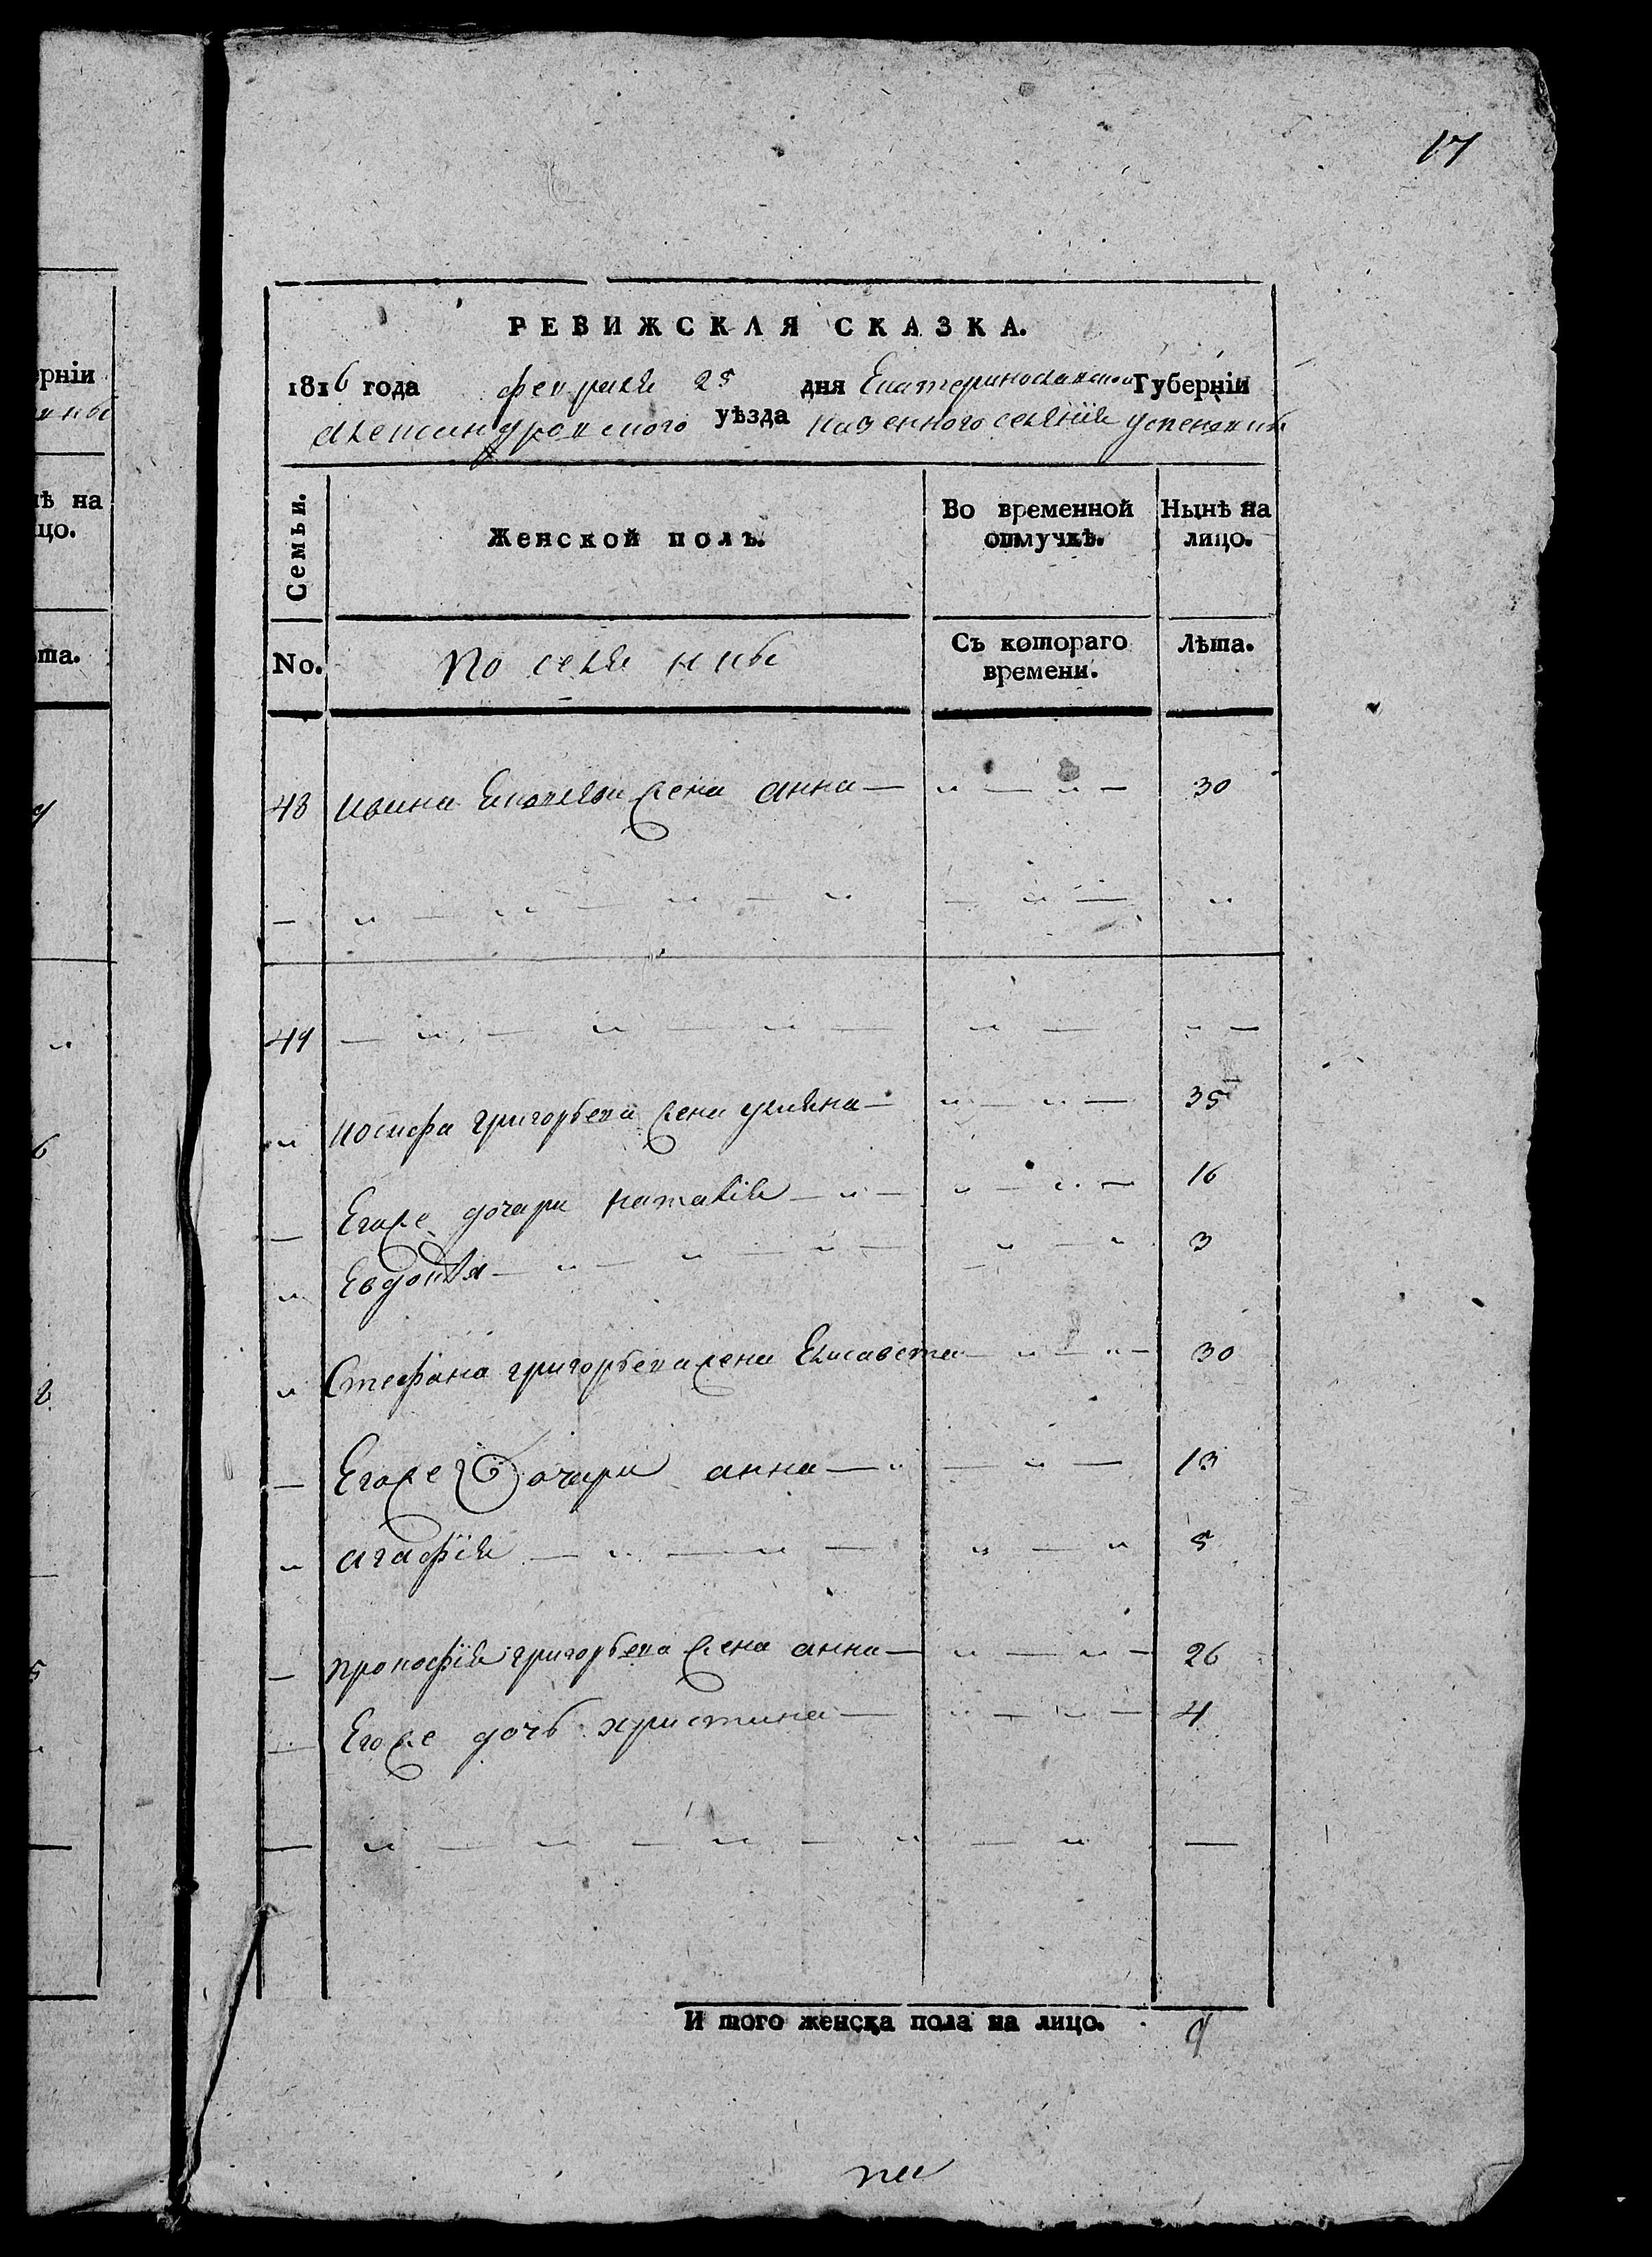 17
РЕВИЖСКАЯ СКАЗКА.
1816 года февраля 25 дня Екатеринославской Губерніи
Александровского уѣзда казенного селенія Успеновки
Семьи.
Женской полъ.
Во временной отлучкѣ.
Нынѣ на лицо.
No.
Поселянки
Съ котораго времени.
Лѣта.
48 Ивана жена анна — 〃 — 〃 — 30
— 〃 — 〃 — 〃 — 〃 — 〃 — 〃
49 — 〃 — 〃 — 〃 — 〃 — 〃 —
〃 иосифа григорьева жена улияна — 〃 — 〃 — 35
— Егоже дочери наталия — 〃 — 〃 — 〃 — 16
〃 Евдокія — 〃 — 〃 — 〃 — 〃 — 〃 3
〃 Стефана григорьева жена Елисавета — 〃 — 〃 — 30
— Егоже Дочери анна — 〃 — 〃 — 13
〃 агафія — 〃 — 〃 — 〃 — 〃 5
— прокофія григорьева жена анна — 〃 — 〃 — 26
— Егоже дочь христина — 〃 — 〃 — 4
— 〃 — 〃 — 〃 — 〃 — 〃 —
И того женска пола на лицо. 9
рніи
вки
ѣ на
цо.
та.